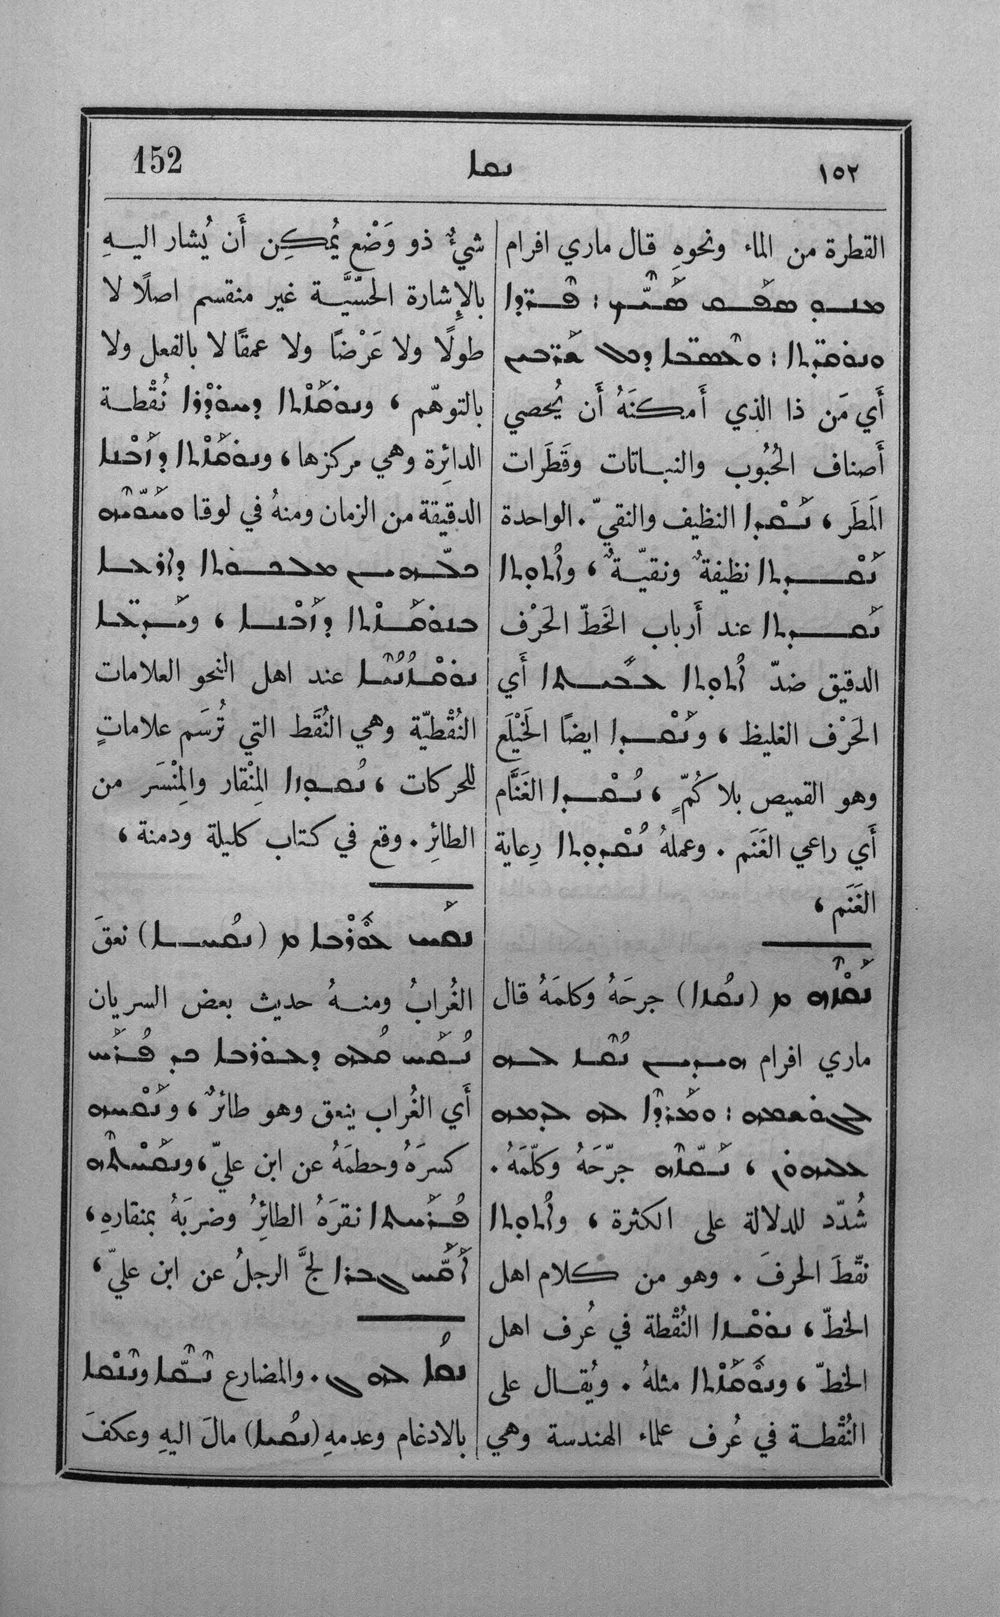 ١٥٢ ܢܩܐ 152
القطرة من الماء ونحوهِ قال ماري افرام
أَي مَن ذا الذي أَمكنَهُ أَن يُحصي
أَصناف الحُبُوب والنباتات وقَطَرات
المَطَر ، ܢܩܕܐ النظيف والنقيّ . الواحدة
ܢܩܕܬܐ نظيفةٌ ونقيّةٌ ، ܘܐܬܘܬܐ
ܢܩܕܬܐ عند أَرباب الخَطّ الحَرْف
الدقيق ضدّ ܐܬܘܬܐ ܥܒܝܬܐ أَي
الحَرْف الغليظ ، ܘܢܩܕܐ ايضًا الخَيْلَع
وهو القميص بلا كُمّ ، ܢܩܕܐ الغَنَّام
أَي راعي الغَنَم . وعملهُ ܢܩܕܘܬܐ رِعاية
الغَنَم ،
ܢܩܙܗ ܡ (ܢܩܙܐ) جرحَهُ وكلمَهُ قال
ماري افرام
ܢܩܙܗ جرّحَهُ وكلّمَهُ .
شُدّد للدلالة على الكثرة ، ܘܐܬܘܬܐ
نقّطَ الحرفَ . وهو من كلام اهل
الخطّ ، ܢܘܩܙܐ النُقْطة في عُرف اهل
الخطّ ، ܘܢܘܩܙܬܐ مثلهُ . ويُقال على
النُقْطة في عُرف علماء الهندسة وهي
شيءٌ ذو وَضْع يُمكِن أَن يُشار اليهِ
بالإِشارة الحسّيَّة غير منقسم اصلًا لا
طولًا ولا عَرْضًا ولا عمقًا لا بالفعل ولا
بالتوهّم ، ܘܢܘܩܙܬܐ ܕܚܘܕܪܐ نُقْطة
الدائرة وهي مركزها ، ܘܢܘܩܙܬܐ ܕܙܒܢܐ
الدقيقة من الزمان ومنهُ في لوقا ܘܚܘܝܗ
ܟܠܗܝܢ ܡܠܟܘܬܐ ܕܐܪܥܐ
ܒܢܘܩܙܬܐ ܕܙܒܢܐ ،
عند اهل النحو العلامات
النُقْطيّة وهي النُقَط التي تُرسَم علاماتٍ
للحركات ، المِنْقار والمِنْسَر من
الطائرِ . وقع في كتاب كليلة ودمنة ،
ܢܩܚ ܥܘܪܒܐ ܡ (ܢܩܚܐ) نعقَ
الغُرابُ ومنهُ حديث بعض السريان
ܢܩܚ ܩܠܗ ܕܥܘܪܒܐ ܟܕ ܦܪܚ
أَي الغُراب ينعق وهو طائرٌ ، ܘܢܩܚܗ
كسرَهُ وحطمَهُ عن ابن عليّ ، ܘܢܩܚܬܗ
ܦܪܚܬܐ نقرَهُ الطائرُ وضربَهُ بمنقارهِ ،
ܐܩܚ ܓܒܪܐ لجَّ الرجلُ عن ابن عليّ ،
ܢܩܐ ܠܗ . والمضارع
بالادغام وعدمهِ (ܢܩܝܐ) مالَ اليهِ وعكفَ